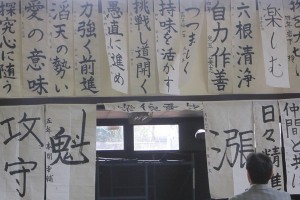 楽しむ
六根清浄
自力作善
つつましく
持味を活かす
挑戦し道開く
愚直に進め
力強く前進
滔天の勢い
愛の意味
探究心に随う
仲間と共に
日々精進
漲
魁
攻守